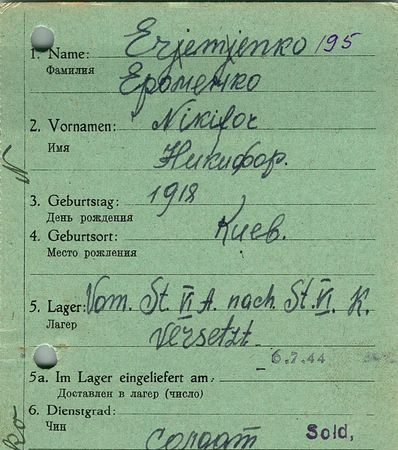 Erjemjenko 195
1. Name:
Фамилия
Ероменко
2. Vornamen: Nikifor
Имя
Никифор.
3. Geburtstag: 1918
День рождения
4. Geburtsort: Киев.
Место рождения
5. Lager: Vom. St. VI A. nach. St. VI. K.
Лагер
versetzt.
6.7.44
5a. Im Lager eingeliefert am:
Доставлен в лагер (число)
6. Dienstgrad:
Чин
солдат Sold.